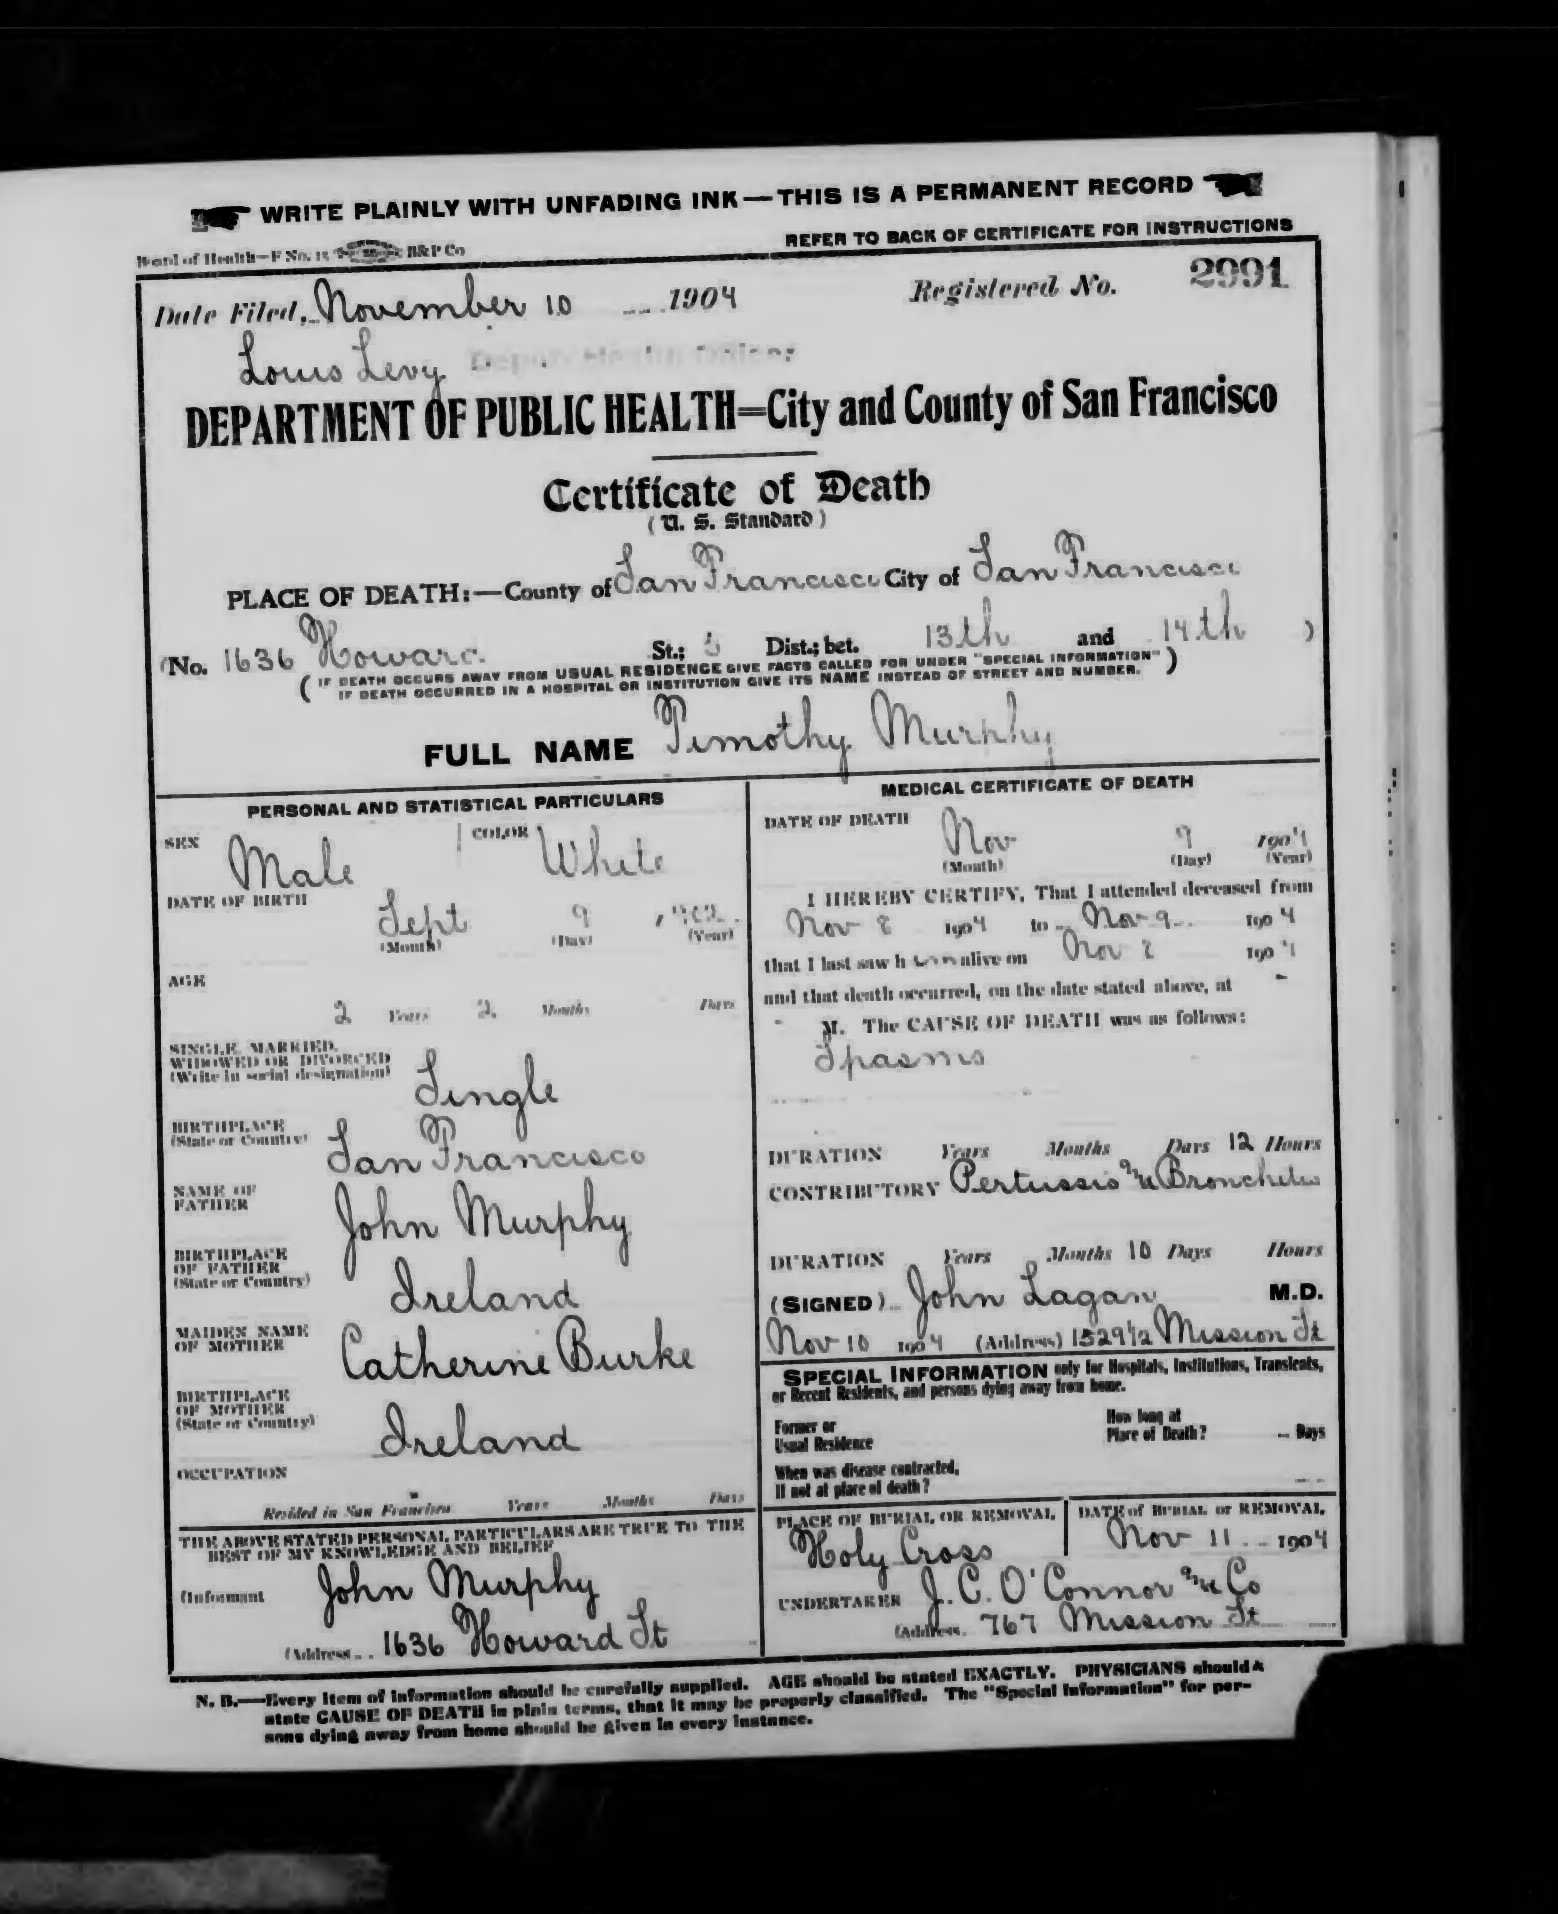 WRITE PLAINLY WITH UNFADING INK—THIS IS A PERMANENT RECORD
Board of Health—F No. 15 B&P Co
REFER TO BACK OF CERTIFICATE FOR INSTRUCTIONS
Date Filed, November 10 1904 Registered No. 2991
Louis Levy Deputy Health Officer
DEPARTMENT OF PUBLIC HEALTH=City and County of San Francisco
Certificate of Death
(U. S. Standard)
PLACE OF DEATH:—County of San Francisco City of San Francisco
(No. 1636 Howard St.; Dist.; bet. 13th and 14th )
( IF DEATH OCCURS AWAY FROM USUAL RESIDENCE GIVE FACTS CALLED FOR UNDER "SPECIAL INFORMATION" )
IF DEATH OCCURRED IN A HOSPITAL OR INSTITUTION GIVE ITS NAME INSTEAD OF STREET AND NUMBER.
FULL NAME Timothy Murphy
PERSONAL AND STATISTICAL PARTICULARS
SEX Male COLOR White
DATE OF BIRTH
Sept 9 , 1902
(Month) (Day) (Year)
AGE
2 Years 2 Months Days
SINGLE, MARRIED,
WIDOWED OR DIVORCED
(Write in social designation) Single
BIRTHPLACE
(State or Country) San Francisco
NAME OF
FATHER John Murphy
BIRTHPLACE
OF FATHER
(State or Country) Ireland
MAIDEN NAME
OF MOTHER Catherine Burke
BIRTHPLACE
OF MOTHER
(State or Country) Ireland
OCCUPATION
Resided in San Francisco Years Months Days
THE ABOVE STATED PERSONAL PARTICULARS ARE TRUE TO THE
BEST OF MY KNOWLEDGE AND BELIEF
(Informant John Murphy
(Address 1636 Howard St
MEDICAL CERTIFICATE OF DEATH
DATE OF DEATH
Nov 9 1904
(Month) (Day) (Year)
I HEREBY CERTIFY, That I attended deceased from
Nov 8 1904 to Nov 9 1904
that I last saw h im alive on Nov 8 1904
and that death occurred, on the date stated above, at -
- M. The CAUSE OF DEATH was as follows:
Spasms
DURATION Years Months Days 12 Hours
CONTRIBUTORY Pertussis and Bronchitis
DURATION Years Months 10 Days Hours
(SIGNED) John Lagan M.D.
Nov 10 1904 (Address) 1529 1/2 Mission St
SPECIAL INFORMATION only for Hospitals, Institutions, Transients,
or Recent Residents, and persons dying away from home.
Former or
Usual Residence
How long at
Place of Death? Days
When was disease contracted,
If not at place of death?
PLACE OF BURIAL OR REMOVAL
Holy Cross
DATE of BURIAL or REMOVAL
Nov 11 1904
UNDERTAKER J. C. O'Connor and Co
(Address 767 Mission St
N. B.—Every item of information should be carefully supplied. AGE should be stated EXACTLY. PHYSICIANS should
state CAUSE OF DEATH in plain terms, that it may be properly classified. The "Special Information" for per-
sons dying away from home should be given in every instance.